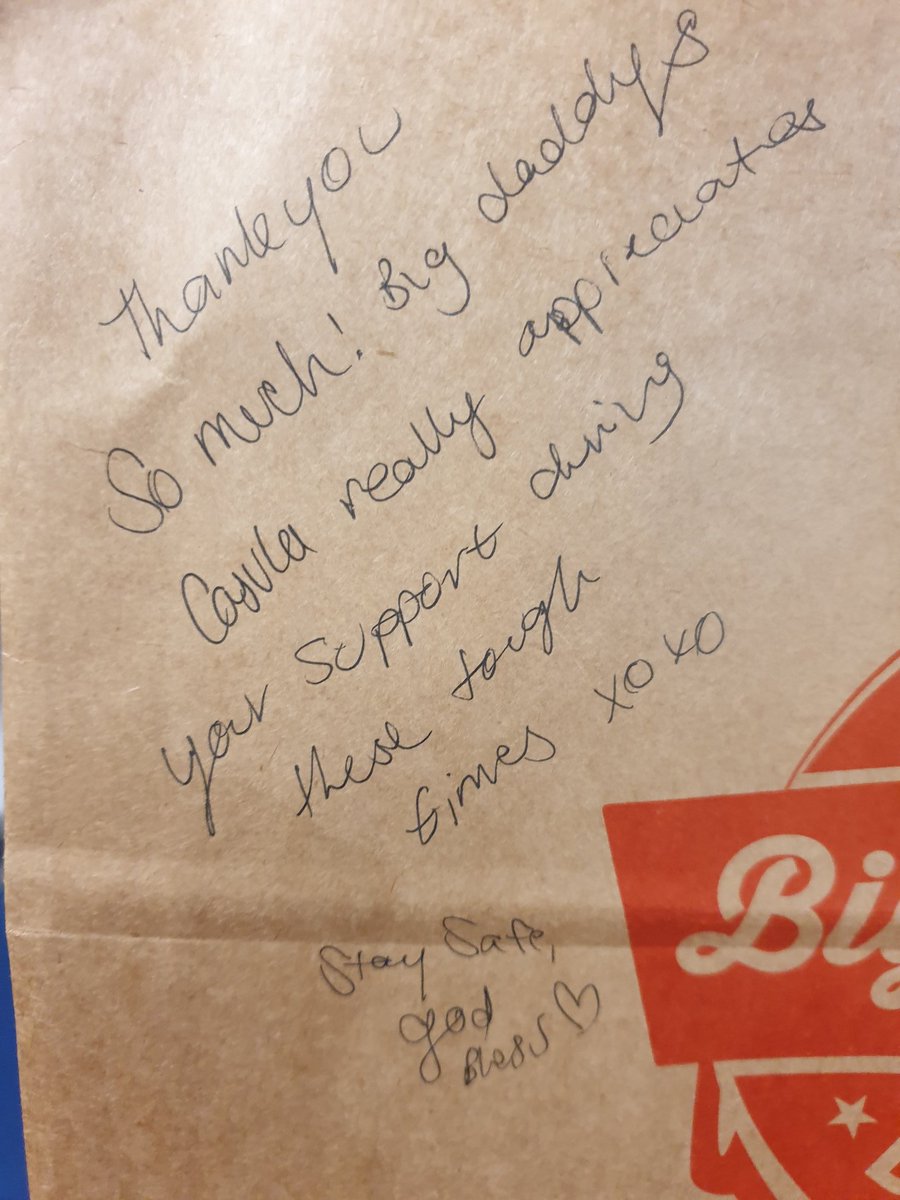 Thankyou
So much! Big daddys
Casula really appreciates
your support during
these tough
times xoxo
Stay Safe,
god
Bless ♡
Big